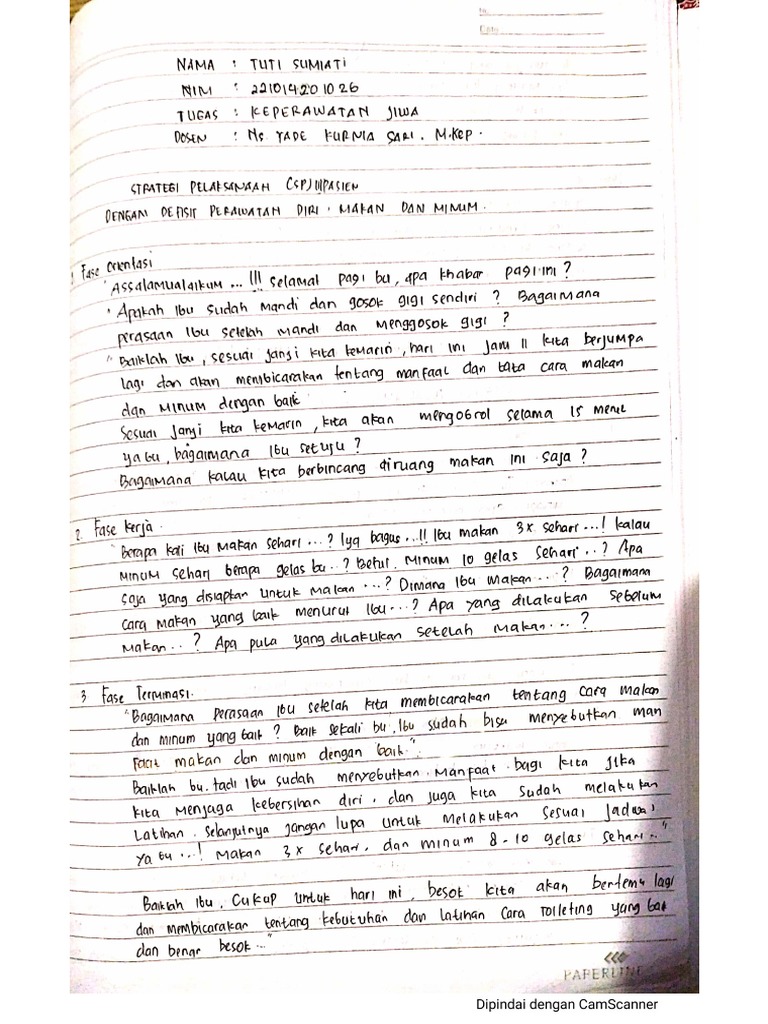 No.
Date
NAMA : TUTI SUMIATI
NIM : 221014201026
TUGAS : KEPERAWATAN JIWA
DOSEN : Ns YADE KURNIA SARI. M.Kep.
STRATEGI PELAKSANAAN (SP) 1 PASIEN
DENGAN DEFISIT PERAWATAN DIRI. MAKAN DAN MINUM.
1 Fase Orientasi
"Assalamualaikum ... !!! Selamat pagi bu, apa khabar pagi ini ?
" Apakah Ibu sudah mandi dan gosok gigi sendiri ? Bagaimana
perasaan Ibu setelah mandi dan menggosok gigi ?
" Baiklah Ibu, sesuai janji kita kemarin, hari ini jam 11 kita berjumpa
lagi dan akan membicarakan tentang manfaat dan tata cara makan
dan minum dengan baik
Sesuai janji kita kemarin, kita akan mengobrol selama 15 menit
ya bu, bagaimana Ibu setuju ?
Bagaimana kalau kita berbincang diruang makan ini saja ?
2. Fase Kerja.
"Berapa kali Ibu makan sehari ...? Iya bagus...!! Ibu makan 3x sehari ...! kalau
minum sehari berapa gelas bu..? Betul. Minum 10 gelas sehari..? Apa
saja yang disiapkan untuk makan ...? Dimana Ibu makan...? Bagaimana
cara makan yang baik menurut Ibu...? Apa yang dilakukan sebelum
makan...? Apa pula yang dilakukan setelah makan....?
3 Fase Terminasi.
"Bagaimana perasaan Ibu setelah kita membicarakan tentang cara makan
dan minum yang baik ? Baik sekali bu, Ibu sudah bisa menyebutkan man
faat makan dan minum dengan baik".
Baiklah bu. tadi Ibu sudah menyebutkan manfaat bagi kita jika
kita menjaga kebersihan diri. dan juga kita sudah melakukan
Latihan. Selanjutnya jangan lupa untuk melakukan sesuai jadwal
ya bu...! Makan 3x sehari. dan minum 8-10 gelas sehari..."
Baiklah Ibu. Cukup untuk hari ini, besok kita akan bertemu lagi
dan membicarakan tentang kebutuhan dan latihan cara toileting yang baik
dan benar besok..."
PAPERLINE
Dipindai dengan CamScanner